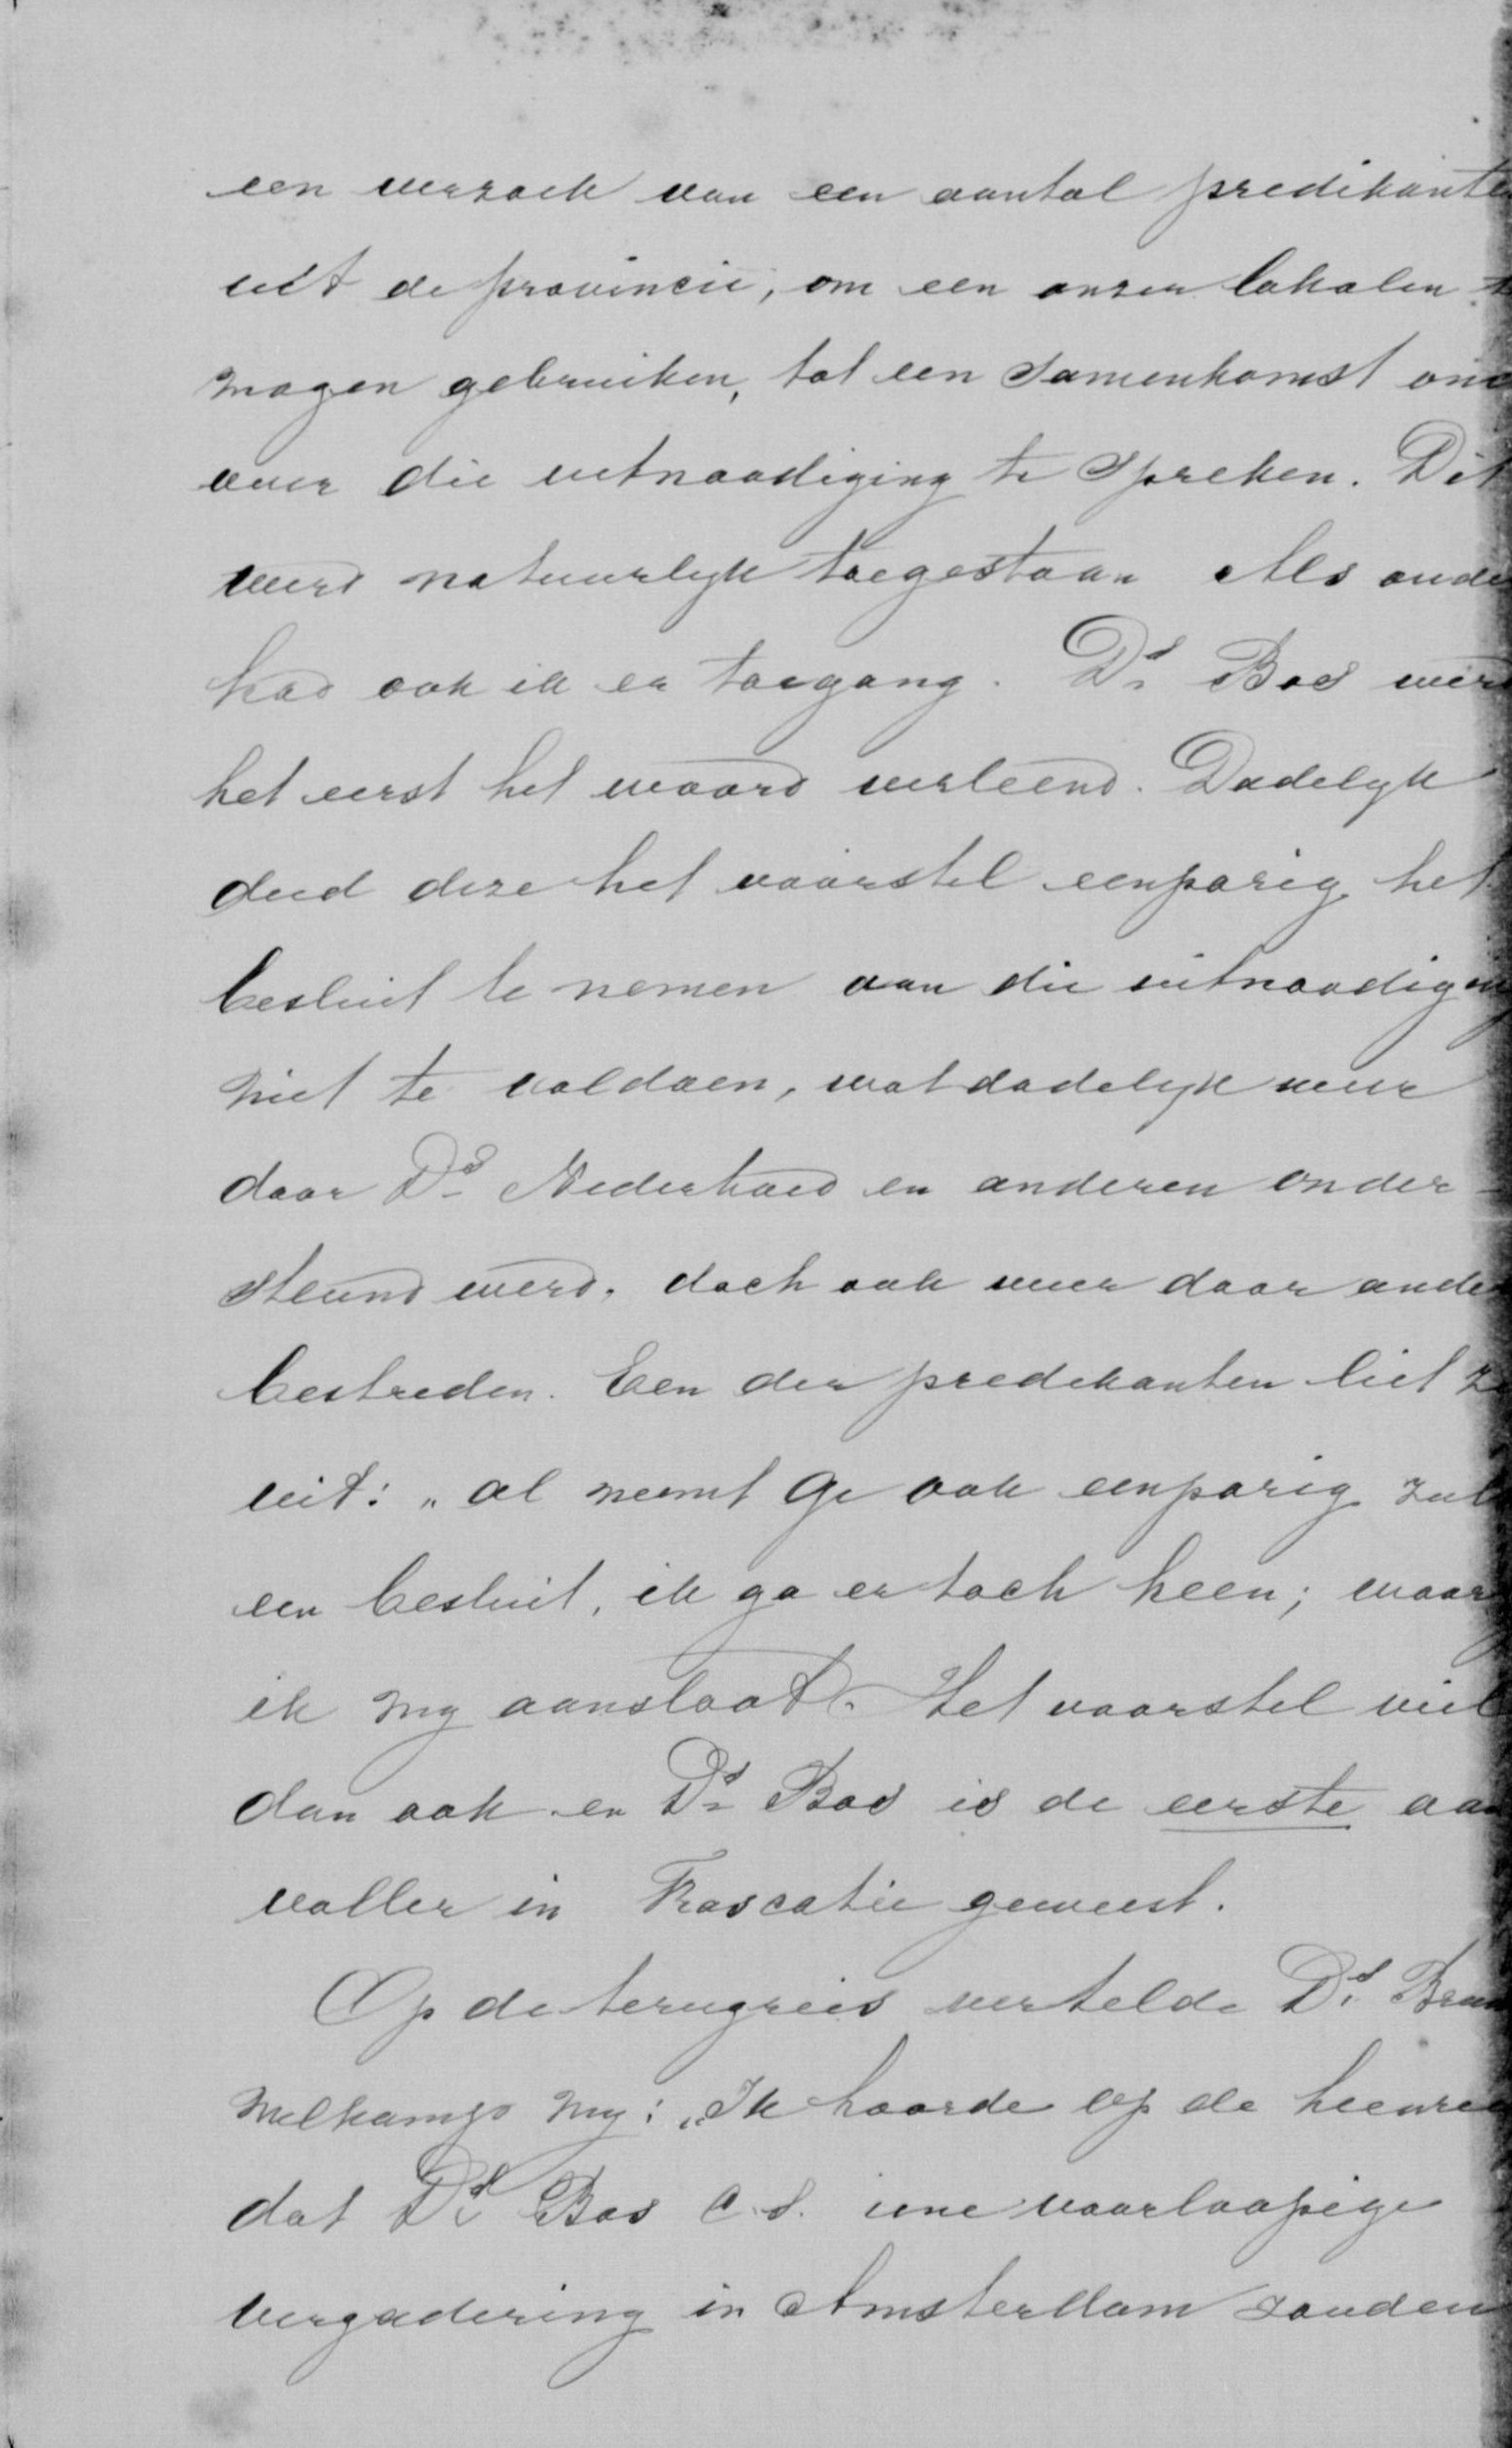 een verzoek van een aantal predikanten
uit de provincie, om een onzer lokalen te
mogen gebruiken, tot een samenkomst om
over die uitnoodiging te spreken. Dit
werd natuurlyk toegestaan Als oude
had ook ik er toegang. Ds Bos werd
het eerst het woord verleend. Dadelyk
deed deze het voorstel eenparig het
besluit te nemen aan die uitnoodiging
niet te voldoen, wat dadelyk weer
door Ds Nederhoed en anderen onder-
steund werd, doch ook weer door ande
bestreden. Een der predikanten liet z
uit: „al neemt ge ook eenparig zulk
een besluit, ik ga er toch heen; waar
ik my aansloot. Het voorstel viel
dan ook en Ds Bos is de eerste aan
valler in Frascatie geweest.
Op de terugreis vertelde Ds Brum
melkamp my: „Ik hoorde op de heenreis
dat Ds Bos c.s. eene voorloopige
vergadering in Amsterdam zouden